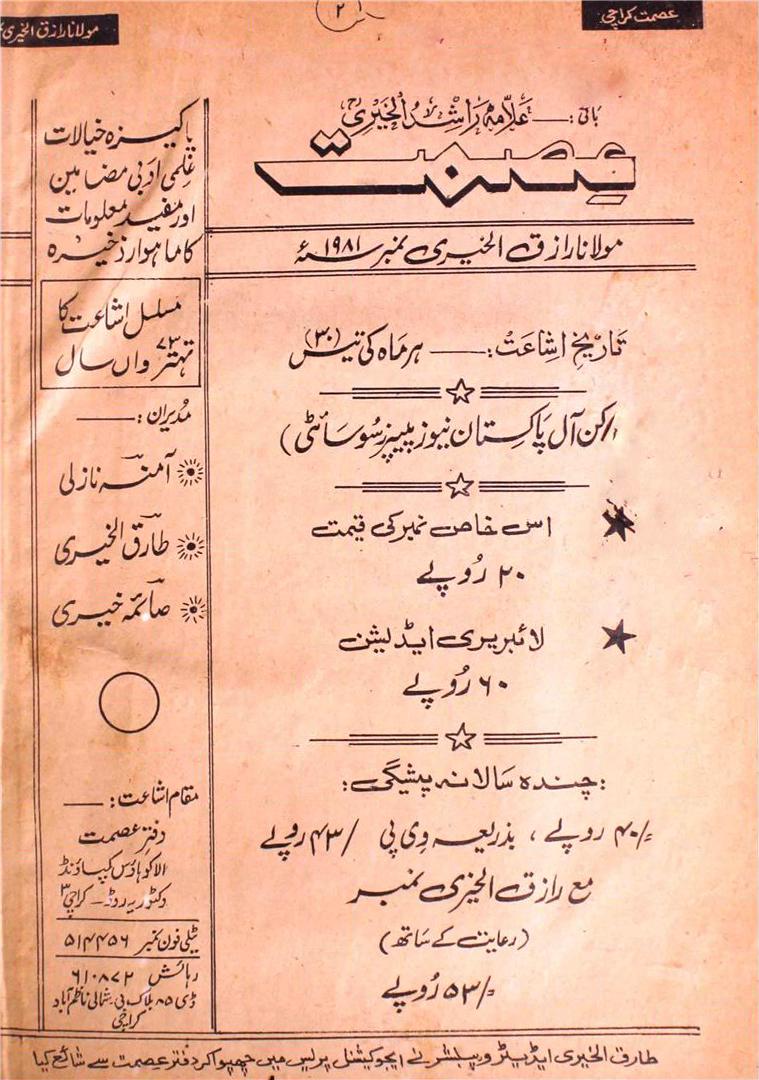 عصمت کراچی
۲
مولانا رازق الخیری
بانی :— علامہ راشد الخیریؒ
عصمت
مولانا رازق الخیری نمبر سنہ ۱۹۸۱ء
تاریخ اشاعت :— ہر ماہ کی تیس (۳۰)
(رکن آل پاکستان نیوز پیپرز سوسائٹی)
اس خاص نمبر کی قیمت
۲۰ روپے
لائبریری ایڈیشن
۶۰ روپے
چندہ سالانہ پیشگی :
۴۰/= روپے ، بذریعہ وی پی ۴۳/ روپے
مع رازق الخیری نمبر
(رعایت کے ساتھ)
۵۳/= روپے
پاکیزہ خیالات
علمی ادبی مضامین
اور مفید معلومات
کا ماہوار ذخیرہ
مسلسل اشاعت کا
تہتر ۷۳ واں سال
مدیران :—
آمنہ نازلی
طارق الخیری
صائمہ خیری
مقام اشاعت :—
دفتر عصمت
الاکو ہاؤس کمپاؤنڈ
وکٹوریہ روڈ - کراچی ۳
ٹیلی فون نمبر ۵۱۴۴۵۶
رہائش ۶۱۰۸۷۲
ڈی ۸۵ بلاک بی شمالی ناظم آباد
کراچی
طارق الخیری ایڈیٹر و پبلشر نے ایجوکیشنل پریس میں چھپوا کر دفتر عصمت سے شائع کیا